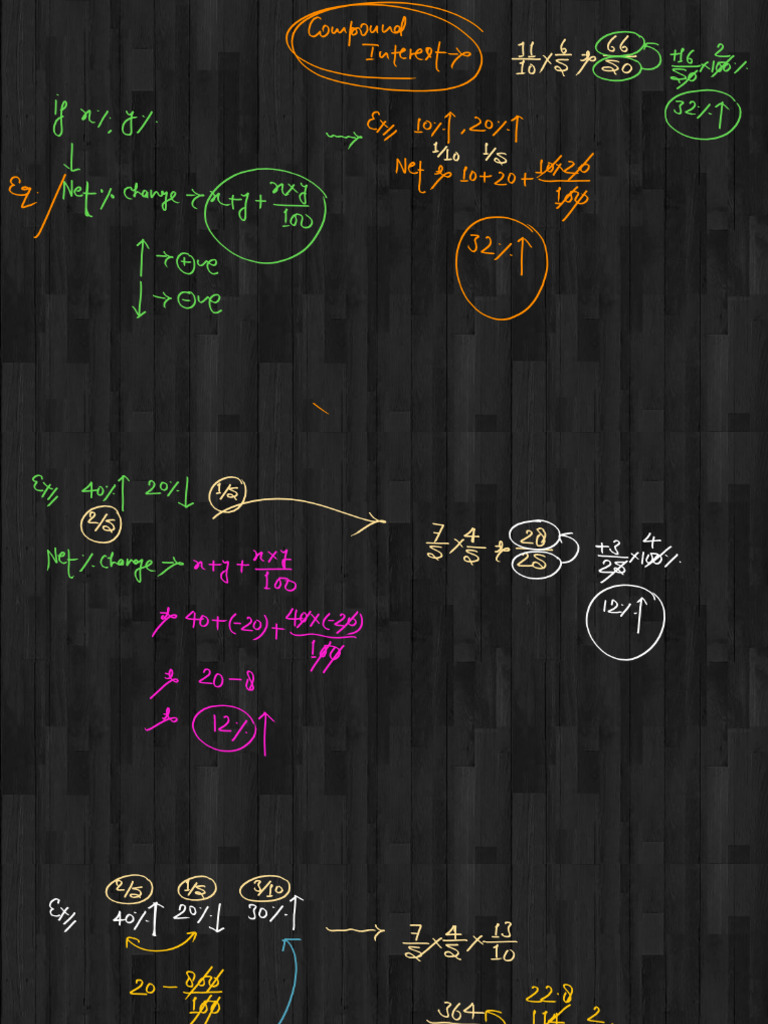 Compound
Interest →
11/10 × 6/5 ⇒ 66/50
+16/50 × 100%
2
32% ↑
if x%, y%
↓
Eq. Net % change → x+y+ x×y/100
↑ → ⊕ve
↓ → ⊖ve
→ Ex// 10%↑, 20%↑
1/10 1/5
Net ⇒ 10+20+ 10×20/100
32% ↑
Ex// 40%↑ 20%↓ 1/5
2/5
Net % change → x+y+ x×y/100
⇒ 40+(-20)+ 40×(-20)/100
⇒ 20-8
⇒ 12% ↑
7/5 × 4/5 ⇒ 28/25
+3/25 × 100%
4
12% ↑
2/5 1/5 3/10
Ex// 40%↑ 20%↓ 30%↑ → 7/5 × 4/5 × 13/10
20 - /100
364
22.8
114 2